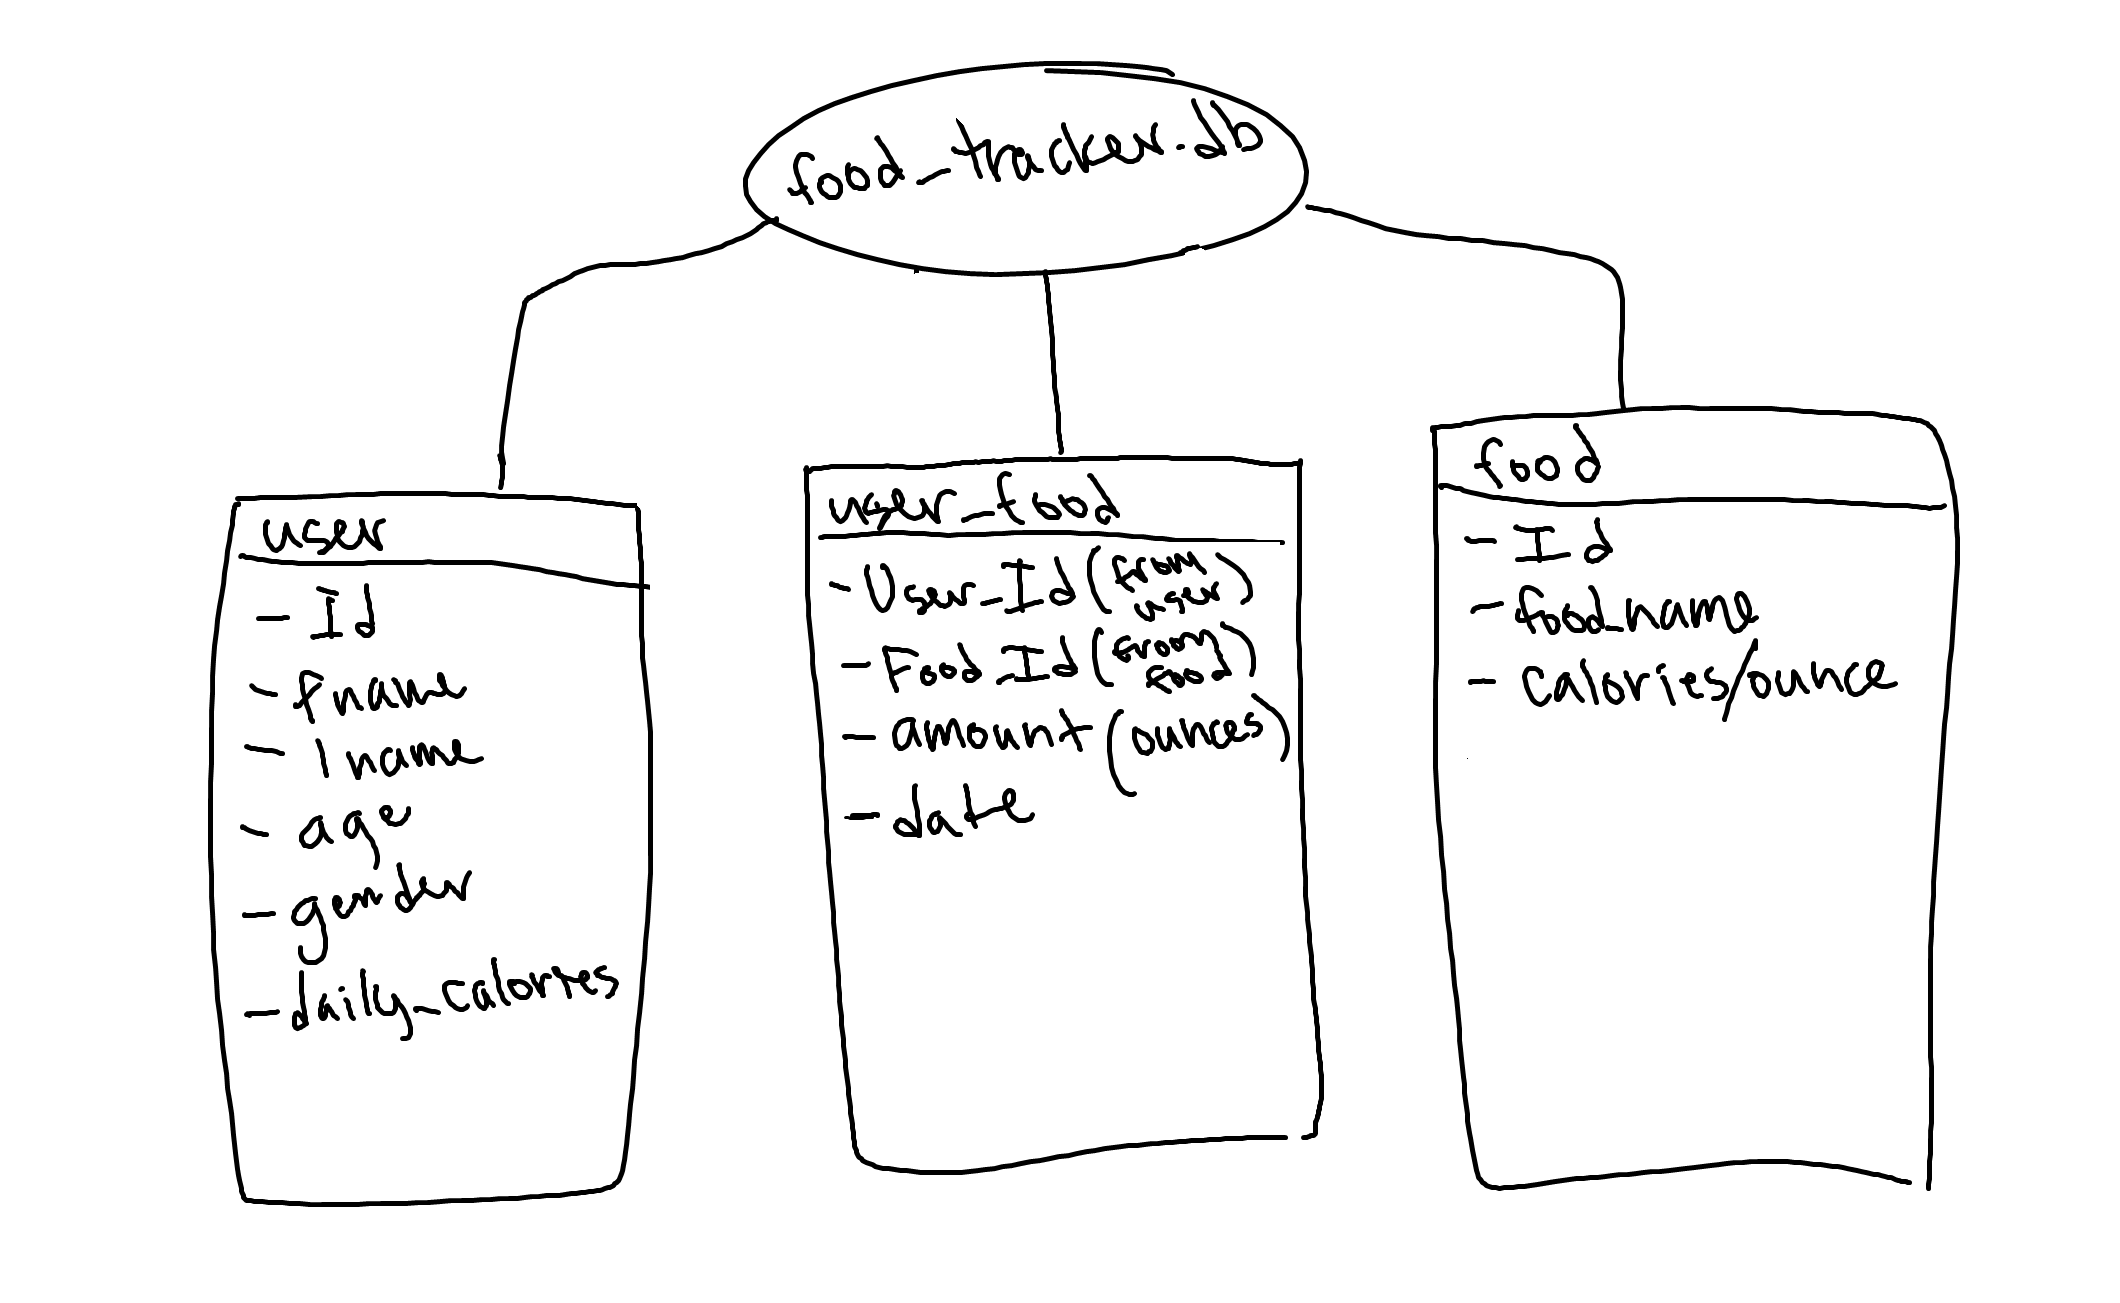 food_tracker.db
user
- Id
- fname
- lname
- age
- gender
- daily_calories
user_food
- User_Id (from user)
- Food_Id (from food)
- amount (ounces)
- date
food
- Id
- food_name
- calories/ounce